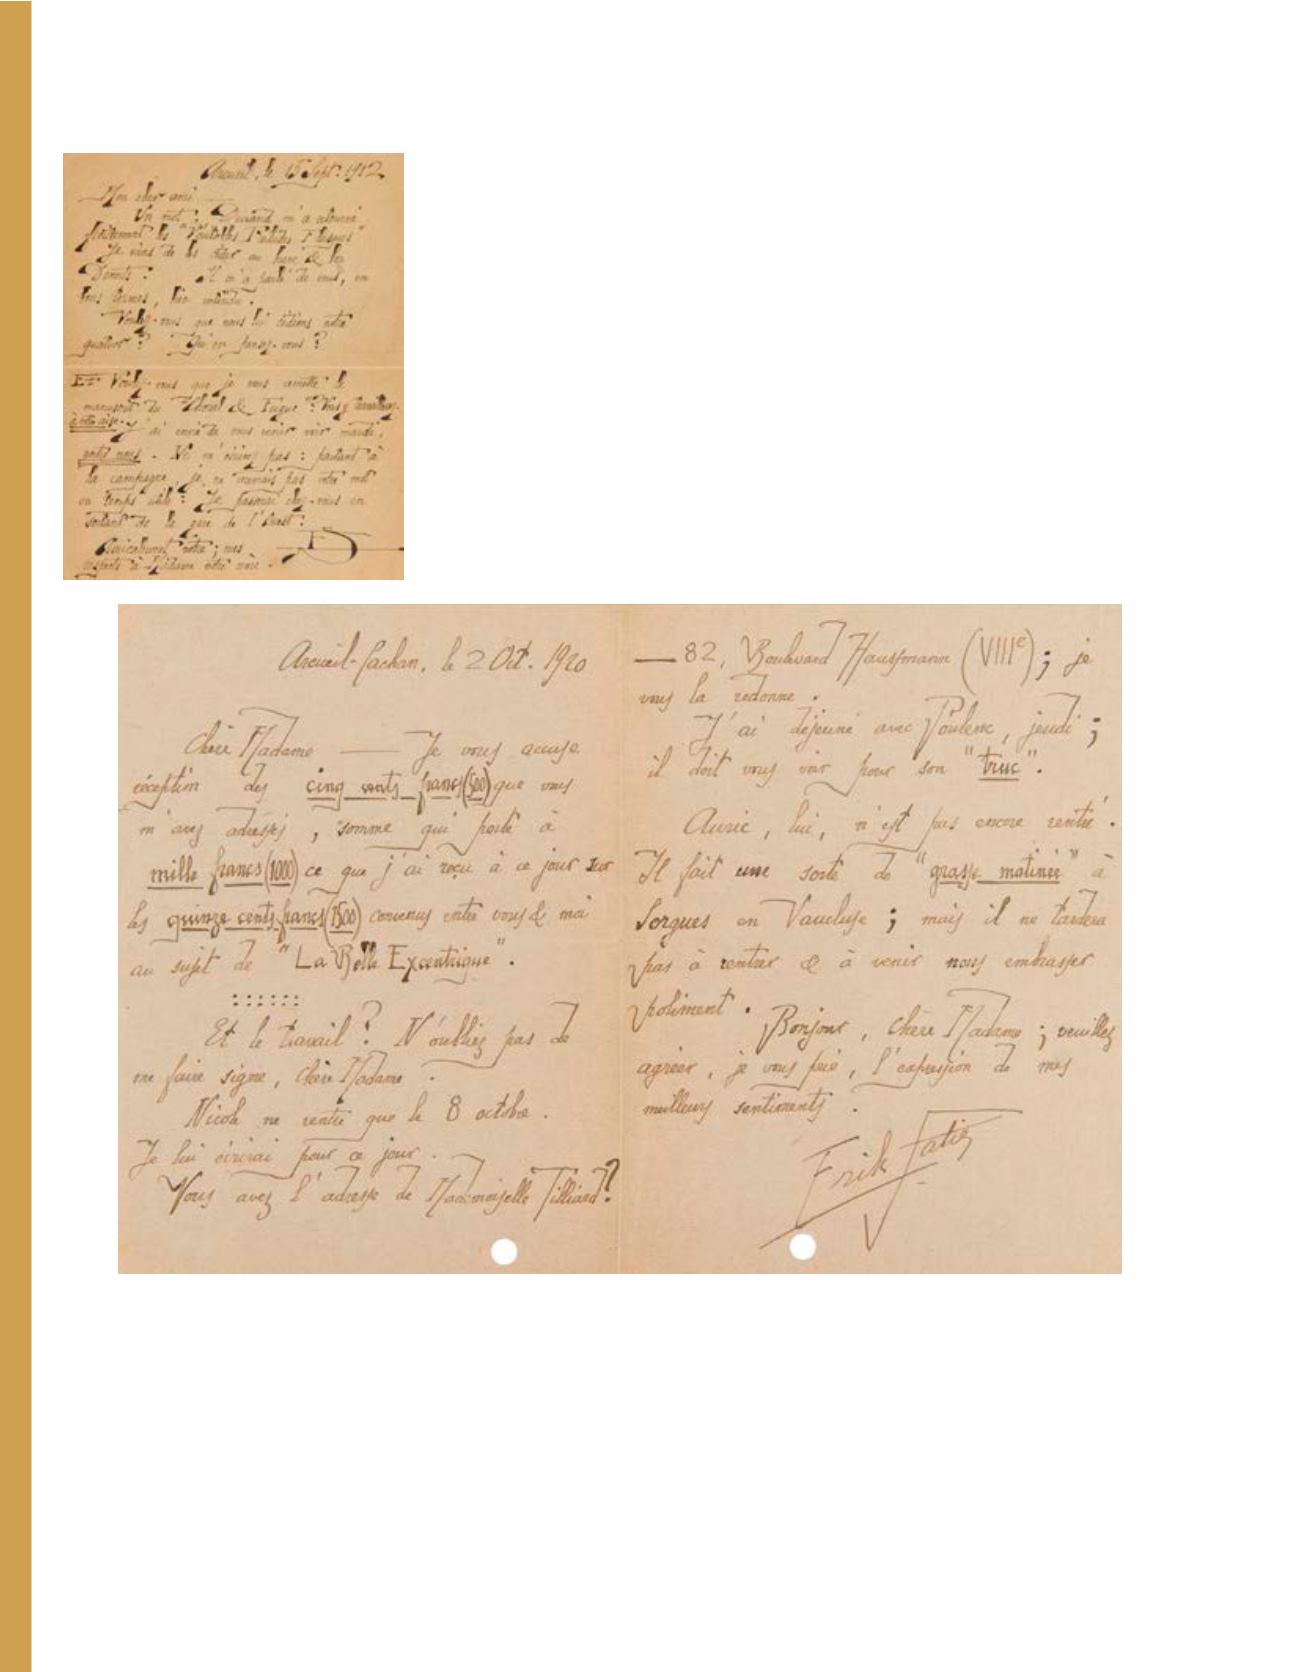 Arcueil, le 15 Sept. 1912
Mon cher ami
Un mot : Durand m'a retourné
les "Véritables Préludes Flasques"
Je viens de les céder au &
Demets : Il m'a parlé de vous, en
bons termes, bien entendu.
Voulez-vous que nous lui cédions votre
quatuor ? Qu'en pensez-vous ?
Et Voulez-vous que je vous remette le
manuscrit du "Choral & Fugue" ? Vous y travaillerez
à votre aise. J'ai envie de vous venir voir mardi,
entre nous. Ne m'écrivez pas : partant à
la campagne, je ne aurais pas votre mot
en temps utile : Je passerai chez-vous en
sortant de la gare de l'Ouest :
Amicalement votre ; mes
respects à Madame votre mère.
ES
Arcueil-Cachan, le 2 Oct. 1920
Chère Madame — Je vous accuse
réception des cinq cents francs (500) que vous
m'avez adressés, somme qui porte à
mille francs (1000) ce que j'ai reçu à ce jour sur
les quinze cents francs (1500) convenus entre vous & moi
au sujet de "La Belle Excentrique".
::::::
Et le travail ? N'oubliez pas de
me faire signe, chère Madame.
Nicole ne rentre que le 8 octobre.
Je lui écrirai pour ce jour.
Vous avez l'adresse de Mademoiselle Tilliard ?
— 82, Boulevard Haussmann (VIIIe) ; je
vous la redonne.
J'ai déjeuné avec Poulenc, jeudi ;
il doit vous voir pour son "truc".
Auric, lui, n'est pas encore rentré.
Il fait une sorte de "grasse matinée" à
Sorgues en Vaucluse ; mais il ne tardera
pas à rentrer & à venir nous embrasser
poliment.
Bonjour, chère Madame ; veuillez
agréer, je vous prie, l'expression de mes
meilleurs sentiments.
Erik Satie